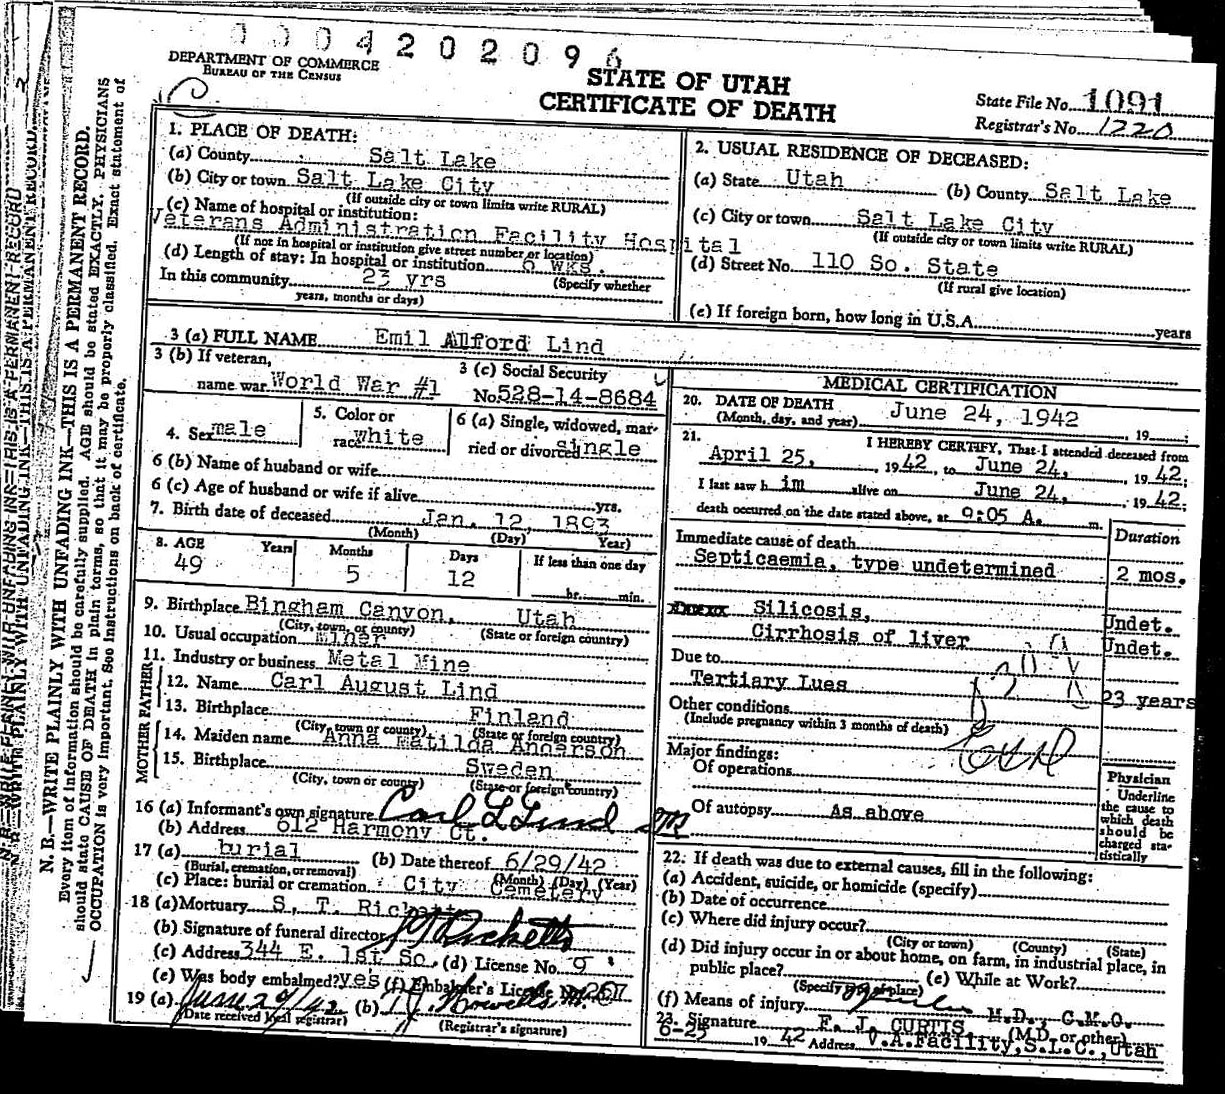 0004202096
DEPARTMENT OF COMMERCE
BUREAU OF THE CENSUS
STATE OF UTAH
CERTIFICATE OF DEATH
State File No. 1091
Registrar's No. 1220
N. B.—WRITE PLAINLY WITH UNFADING INK—THIS IS A PERMANENT RECORD.
Every item of information should be carefully supplied. AGE should be stated EXACTLY. PHYSICIANS
should state CAUSE OF DEATH in plain terms, so that it may be properly classified. Exact statement of
OCCUPATION is very important. See Instructions on back of certificate.
1. PLACE OF DEATH:
(a) County Salt Lake
(b) City or town Salt Lake City
(If outside city or town limits write RURAL)
(c) Name of hospital or institution:
Veterans Administration Facility Hospital
(If not in hospital or institution give street number or location)
(d) Length of stay: In hospital or institution 8 wks.
In this community 23 yrs (Specify whether
years, months or days)
2. USUAL RESIDENCE OF DECEASED:
(a) State Utah (b) County Salt Lake
(c) City or town Salt Lake City
(If outside city or town limits write RURAL)
(d) Street No. 110 So. State
(If rural give location)
(e) If foreign born, how long in U.S.A. years
3 (a) FULL NAME Emil Alford Lind
3 (b) If veteran,
name war World War #1
3 (c) Social Security
No. 528-14-8684
4. Sex male
5. Color or
race white
6 (a) Single, widowed, mar-
ried or divorced single
6 (b) Name of husband or wife
6 (c) Age of husband or wife if alive yrs.
7. Birth date of deceased Jan. 12, 1893
(Month) (Day) Year)
8. AGE Years Months Days If less than one day
49 5 12 hr. min.
9. Birthplace Bingham Canyon, Utah
(City, town, or county) (State or foreign country)
10. Usual occupation Miner
11. Industry or business Metal Mine
FATHER
12. Name Carl August Lind
13. Birthplace Finland
(City, town or county) (State or foreign country)
MOTHER
14. Maiden name Anna Matilda Anderson
15. Birthplace Sweden
(City, town or county) (State or foreign country)
16 (a) Informant's own signature Carl L Lind
(b) Address 612 Harmony Ct.
17 (a) burial (b) Date thereof 6/29/42
(Burial, cremation, or removal) (Month) (Day) (Year)
(c) Place: burial or cremation City Cemetery
18 (a) Mortuary S. T. Rickett
(b) Signature of funeral director Ricketts
(c) Address 344 E. 1st So. (d) License No. 9
(e) Was body embalmed? yes (f) Embalmer's License No. 267
19 (a) June 29/42 (b) T. J. Howells M.D.
(Date received local registrar) (Registrar's signature)
MEDICAL CERTIFICATION
20. DATE OF DEATH June 24, 1942
(Month, day, and year) , 19 ;
21. I HEREBY CERTIFY, That I attended deceased from
April 25, , 1942, to June 24, , 1942;
I last saw him alive on June 24, , 1942;
death occurred on the date stated above, at 9:05 A. m.
Immediate cause of death Duration
Septicaemia, type undetermined 2 mos.
Silicosis, Undet.
Cirrhosis of liver Undet.
Due to
Tertiary Lues 23 years
Other conditions
(Include pregnancy within 3 months of death)
Major findings:
Of operations
Of autopsy As above
Physician
Underline
the cause to
which death
should be
charged sta-
tistically
22. If death was due to external causes, fill in the following:
(a) Accident, suicide, or homicide (specify)
(b) Date of occurrence
(c) Where did injury occur?
(City or town) (County) (State)
(d) Did injury occur in or about home, on farm, in industrial place, in
public place? (e) While at Work?
(Specify type of place)
(f) Means of injury
23. Signature F. J. CURTIS, M.D., C.M.O.
(M.D. or other)
6-25 1942 Address V.A.Facility,S.L.C.,Utah